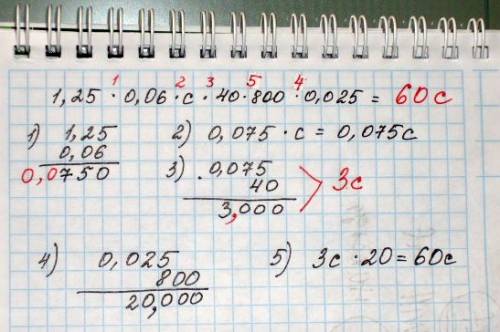 1 2 3 5 4
1,25 · 0,06 · c · 40 · 800 · 0,025 = 60c
1) 1,25
0,06
0,0750
2) 0,075 · c = 0,075c
3) 0,075
40
3,000
3c
4) 0,025
800
20,000
5) 3c · 20 = 60c